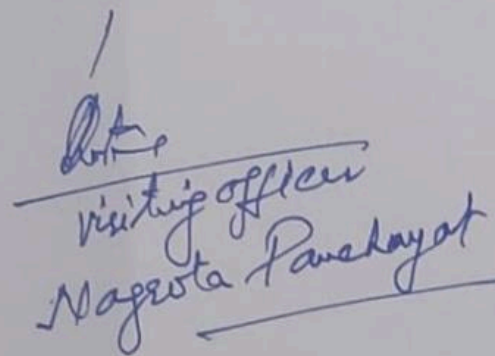 visiting officer
Nagrota Panchayat